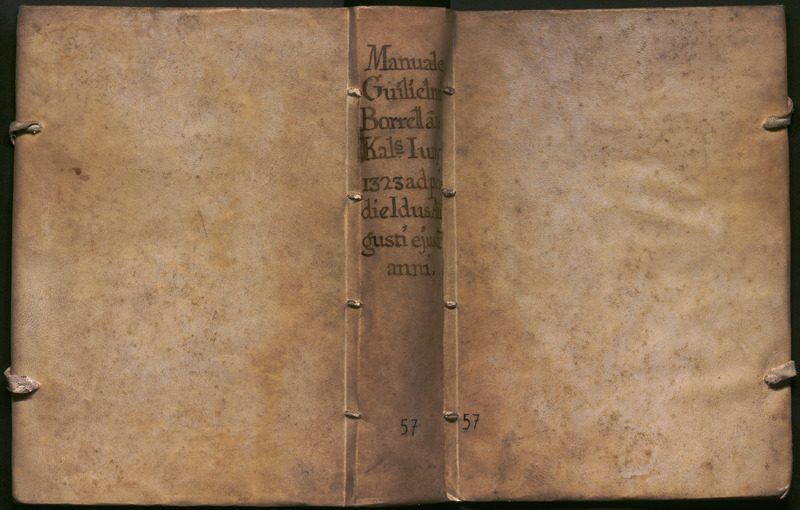 Manuale
Guilielm
Borrell à
Kals Iun
1323 ad p
die Idus Au
gusti ejusd
anni.
57
57